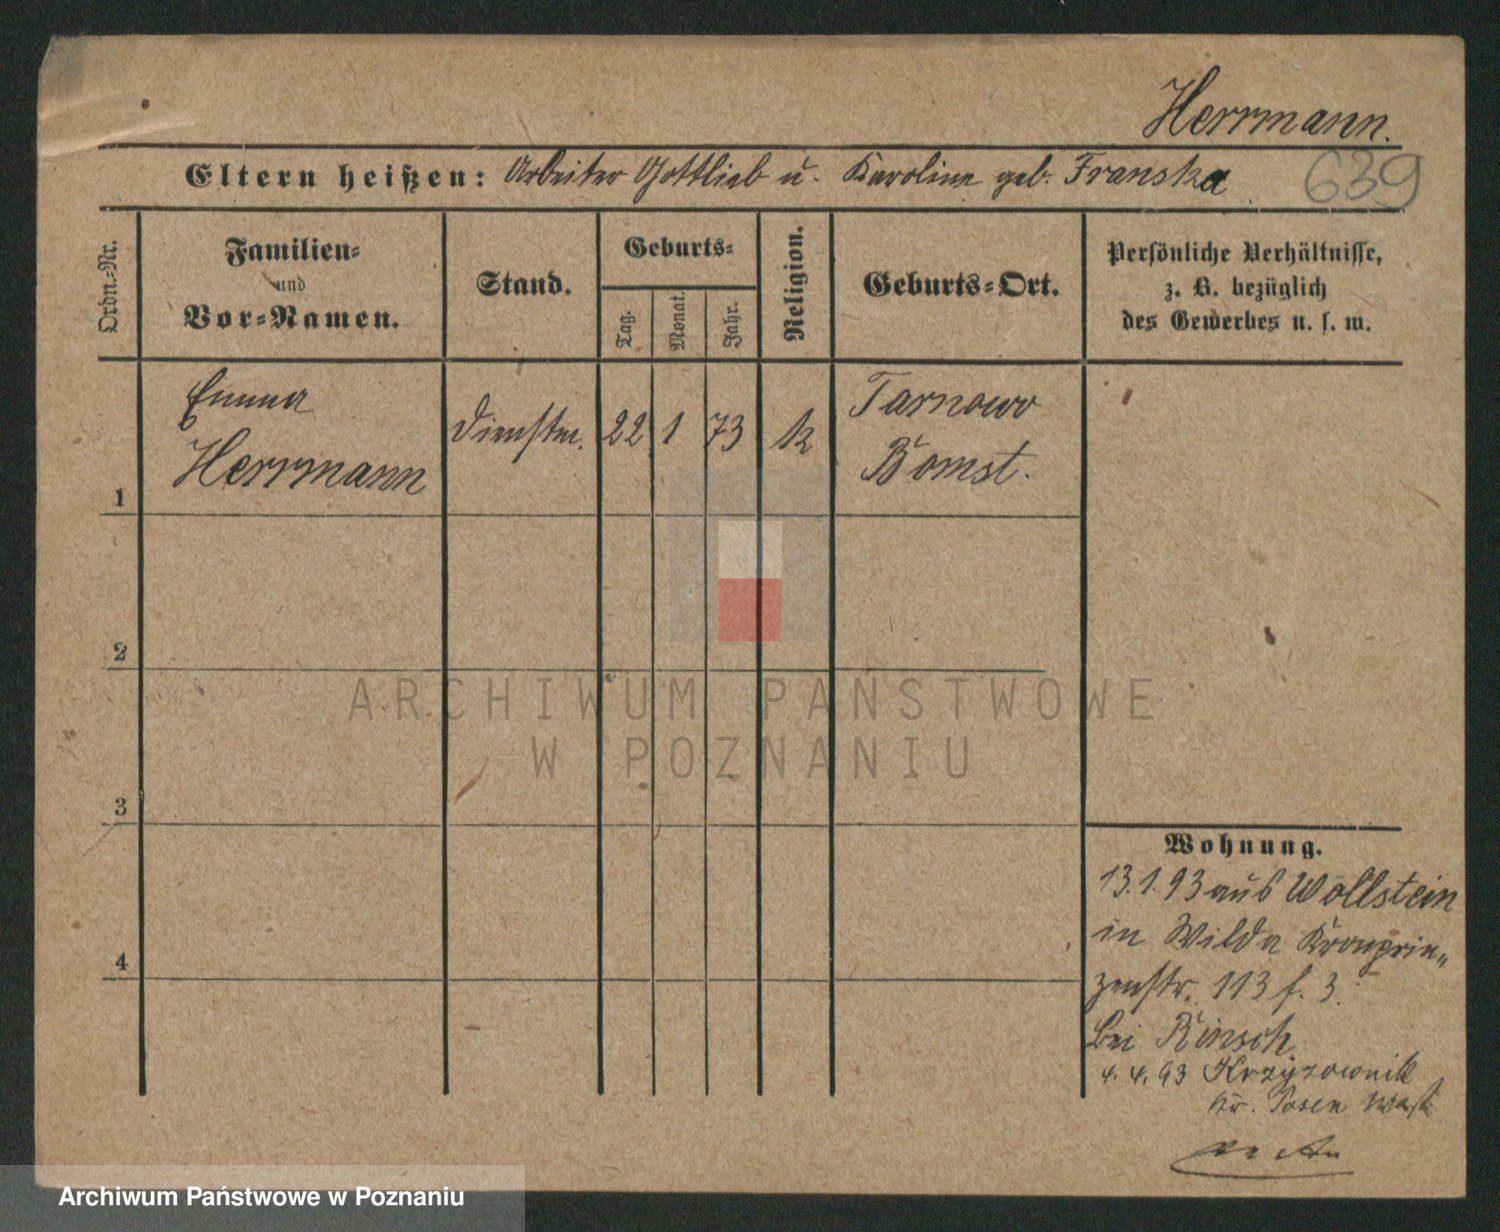 Herrmann.
Eltern heißen: Arbeiter Gottlieb u. Karoline geb. Franska
639
Ordn.-Nr.
Familien-
und
Vor-Namen.
Stand.
Geburts-
Tag.
Monat.
Jahr.
Religion.
Geburts-Ort.
Persönliche Verhältnisse,
z. B. bezüglich
des Gewerbes u. s. w.
1
Emma
Herrmann
Dienstm.
22
1
73
k
Tarnowo
Bomst.
2
3
4
ARCHIWUM PAŃSTWOWE
W POZNANIU
Wohnung.
13.1.93 aus Wollstein
in Wilda Kronprin-
zenstr. 113 f. 3.
bei Rinsch
4. 4. 93 Krzyzownik
Kr. Posen West
Archiwum Państwowe w Poznaniu